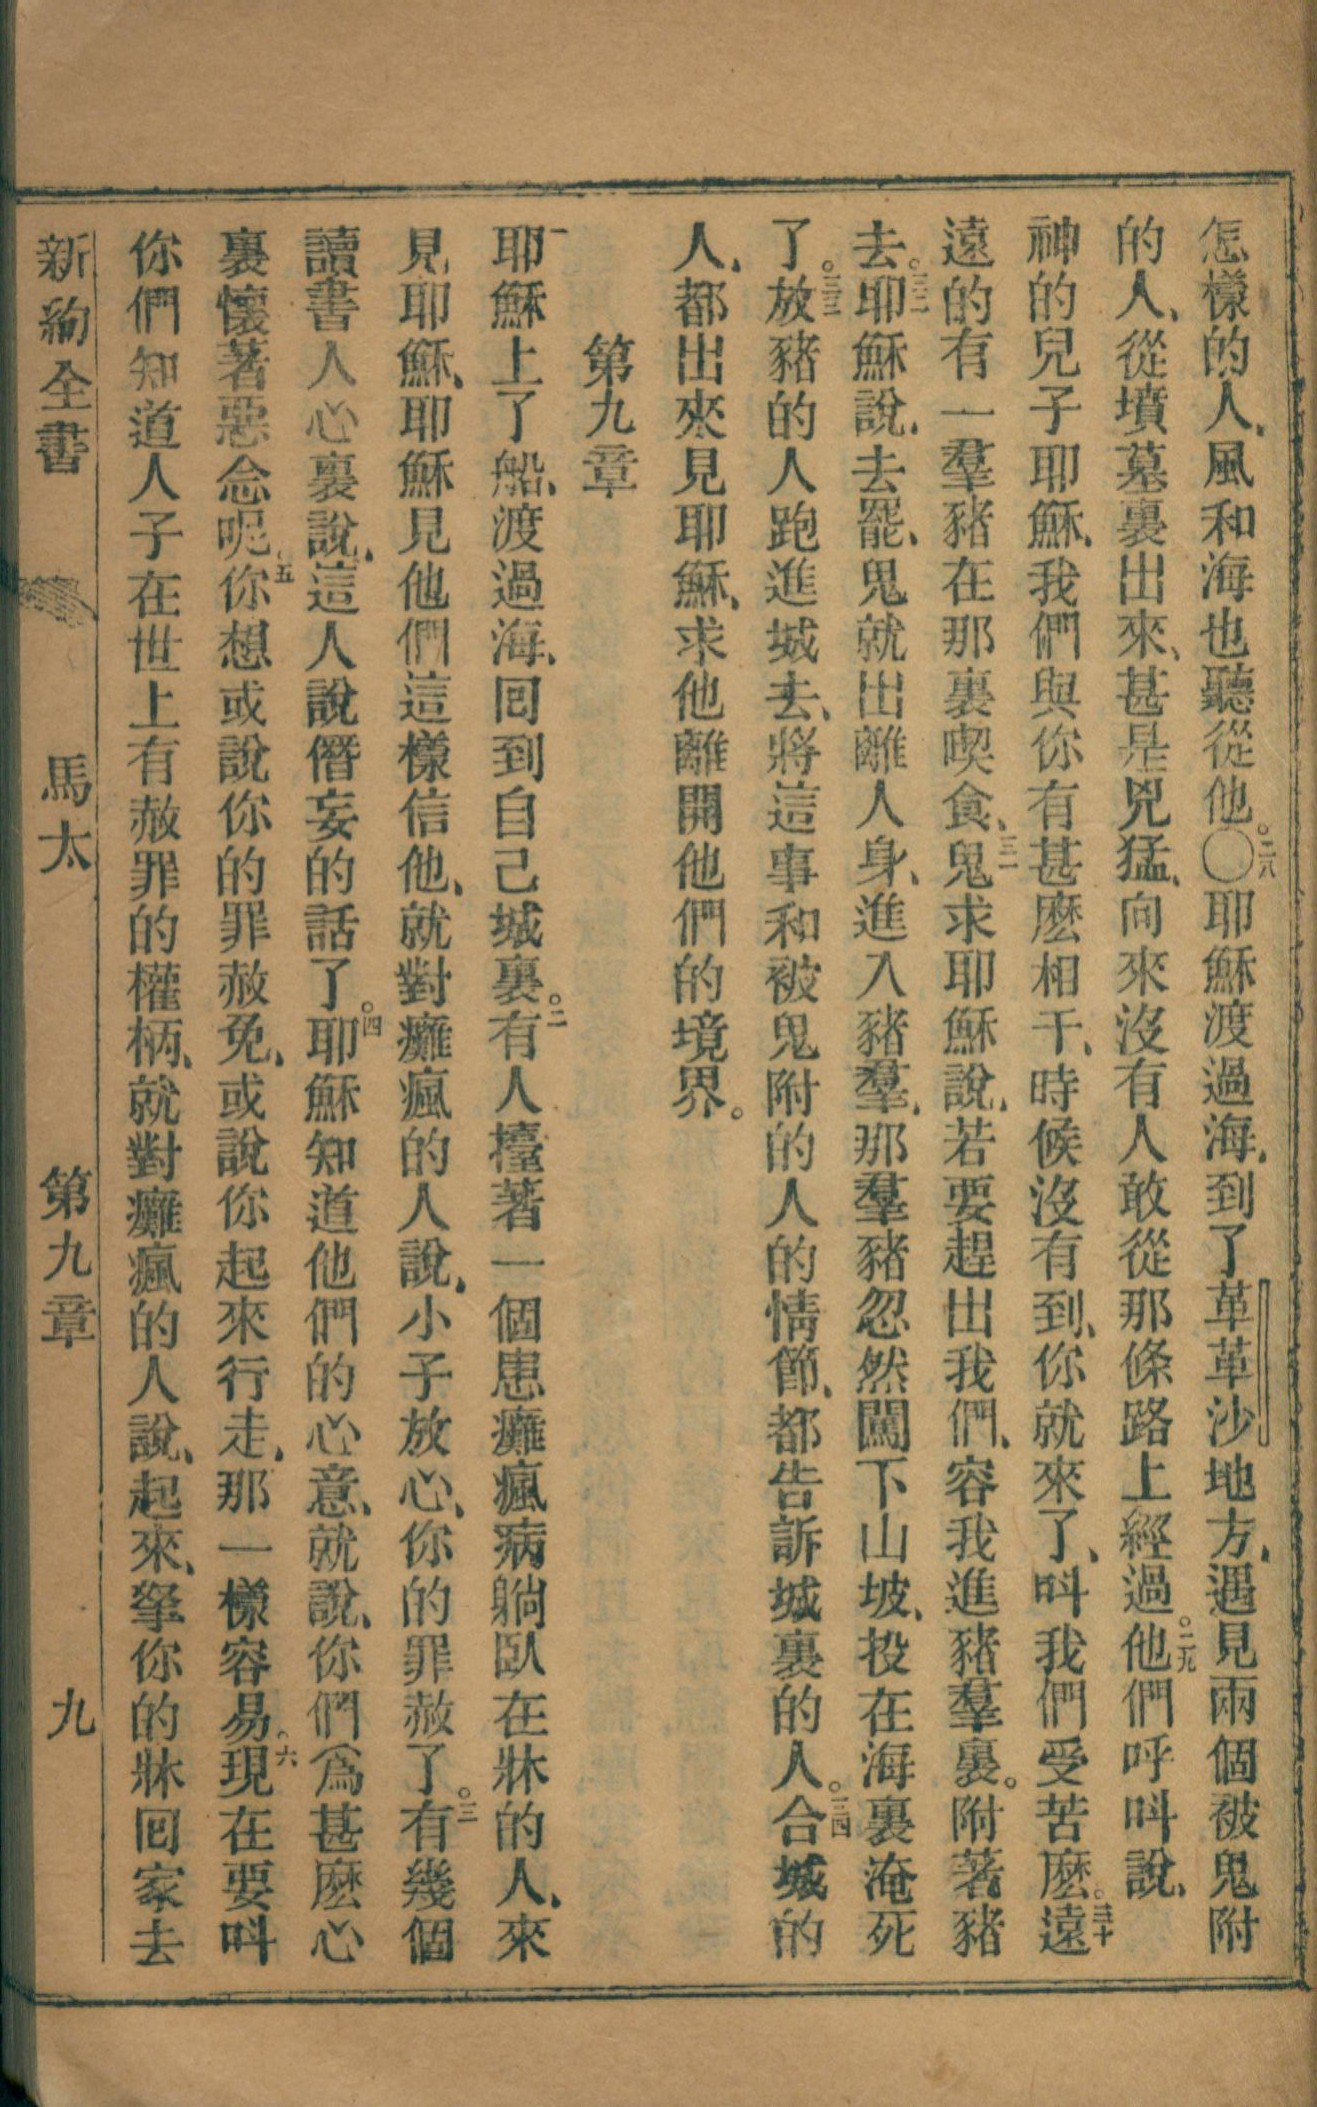 怎樣的人、風和海也聽從他。二八〇耶穌渡過海、到了革革沙地方、遇見兩個被鬼附
的人、從墳墓裏出來、甚是兇猛、向來沒有人敢從那條路上經過。二九他們呼呌說、
神的兒子耶穌、我們與你有甚麽相干、時候沒有到、你就來了、呌我們受苦麽。三十遠
遠的有一羣豬在那裏喫食、三一鬼求耶穌說、若要趕出我們、容我進豬羣裏。附著豬
去。三二耶穌說、去罷、鬼就出離人身、進入豬羣、那羣豬忽然闖下山坡、投在海裏淹死
了。三三放豬的人跑進城去、將這事和被鬼附的人的情節、都告訴城裏的人。三四合城的
人、都出來見耶穌、求他離開他們的境界。
第九章
一耶穌上了船、渡過海、回到自己城裏。二有人擡著一個患癱瘋病躺臥在牀的人、來
見耶穌、耶穌見他們這樣信他、就對癱瘋的人說、小子放心、你的罪赦了。三有幾個
讀書人心裏說、這人說僭妄的話了。四耶穌知道他們的心意、就說、你們爲甚麽心
裏懷著惡念呢。五你想或說你的罪赦免、或說你起來行走、那一樣容易。六現在要呌
你們知道人子在世上有赦罪的權柄、就對癱瘋的人說、起來、拏你的牀回家去
新約全書 馬太 第九章 九